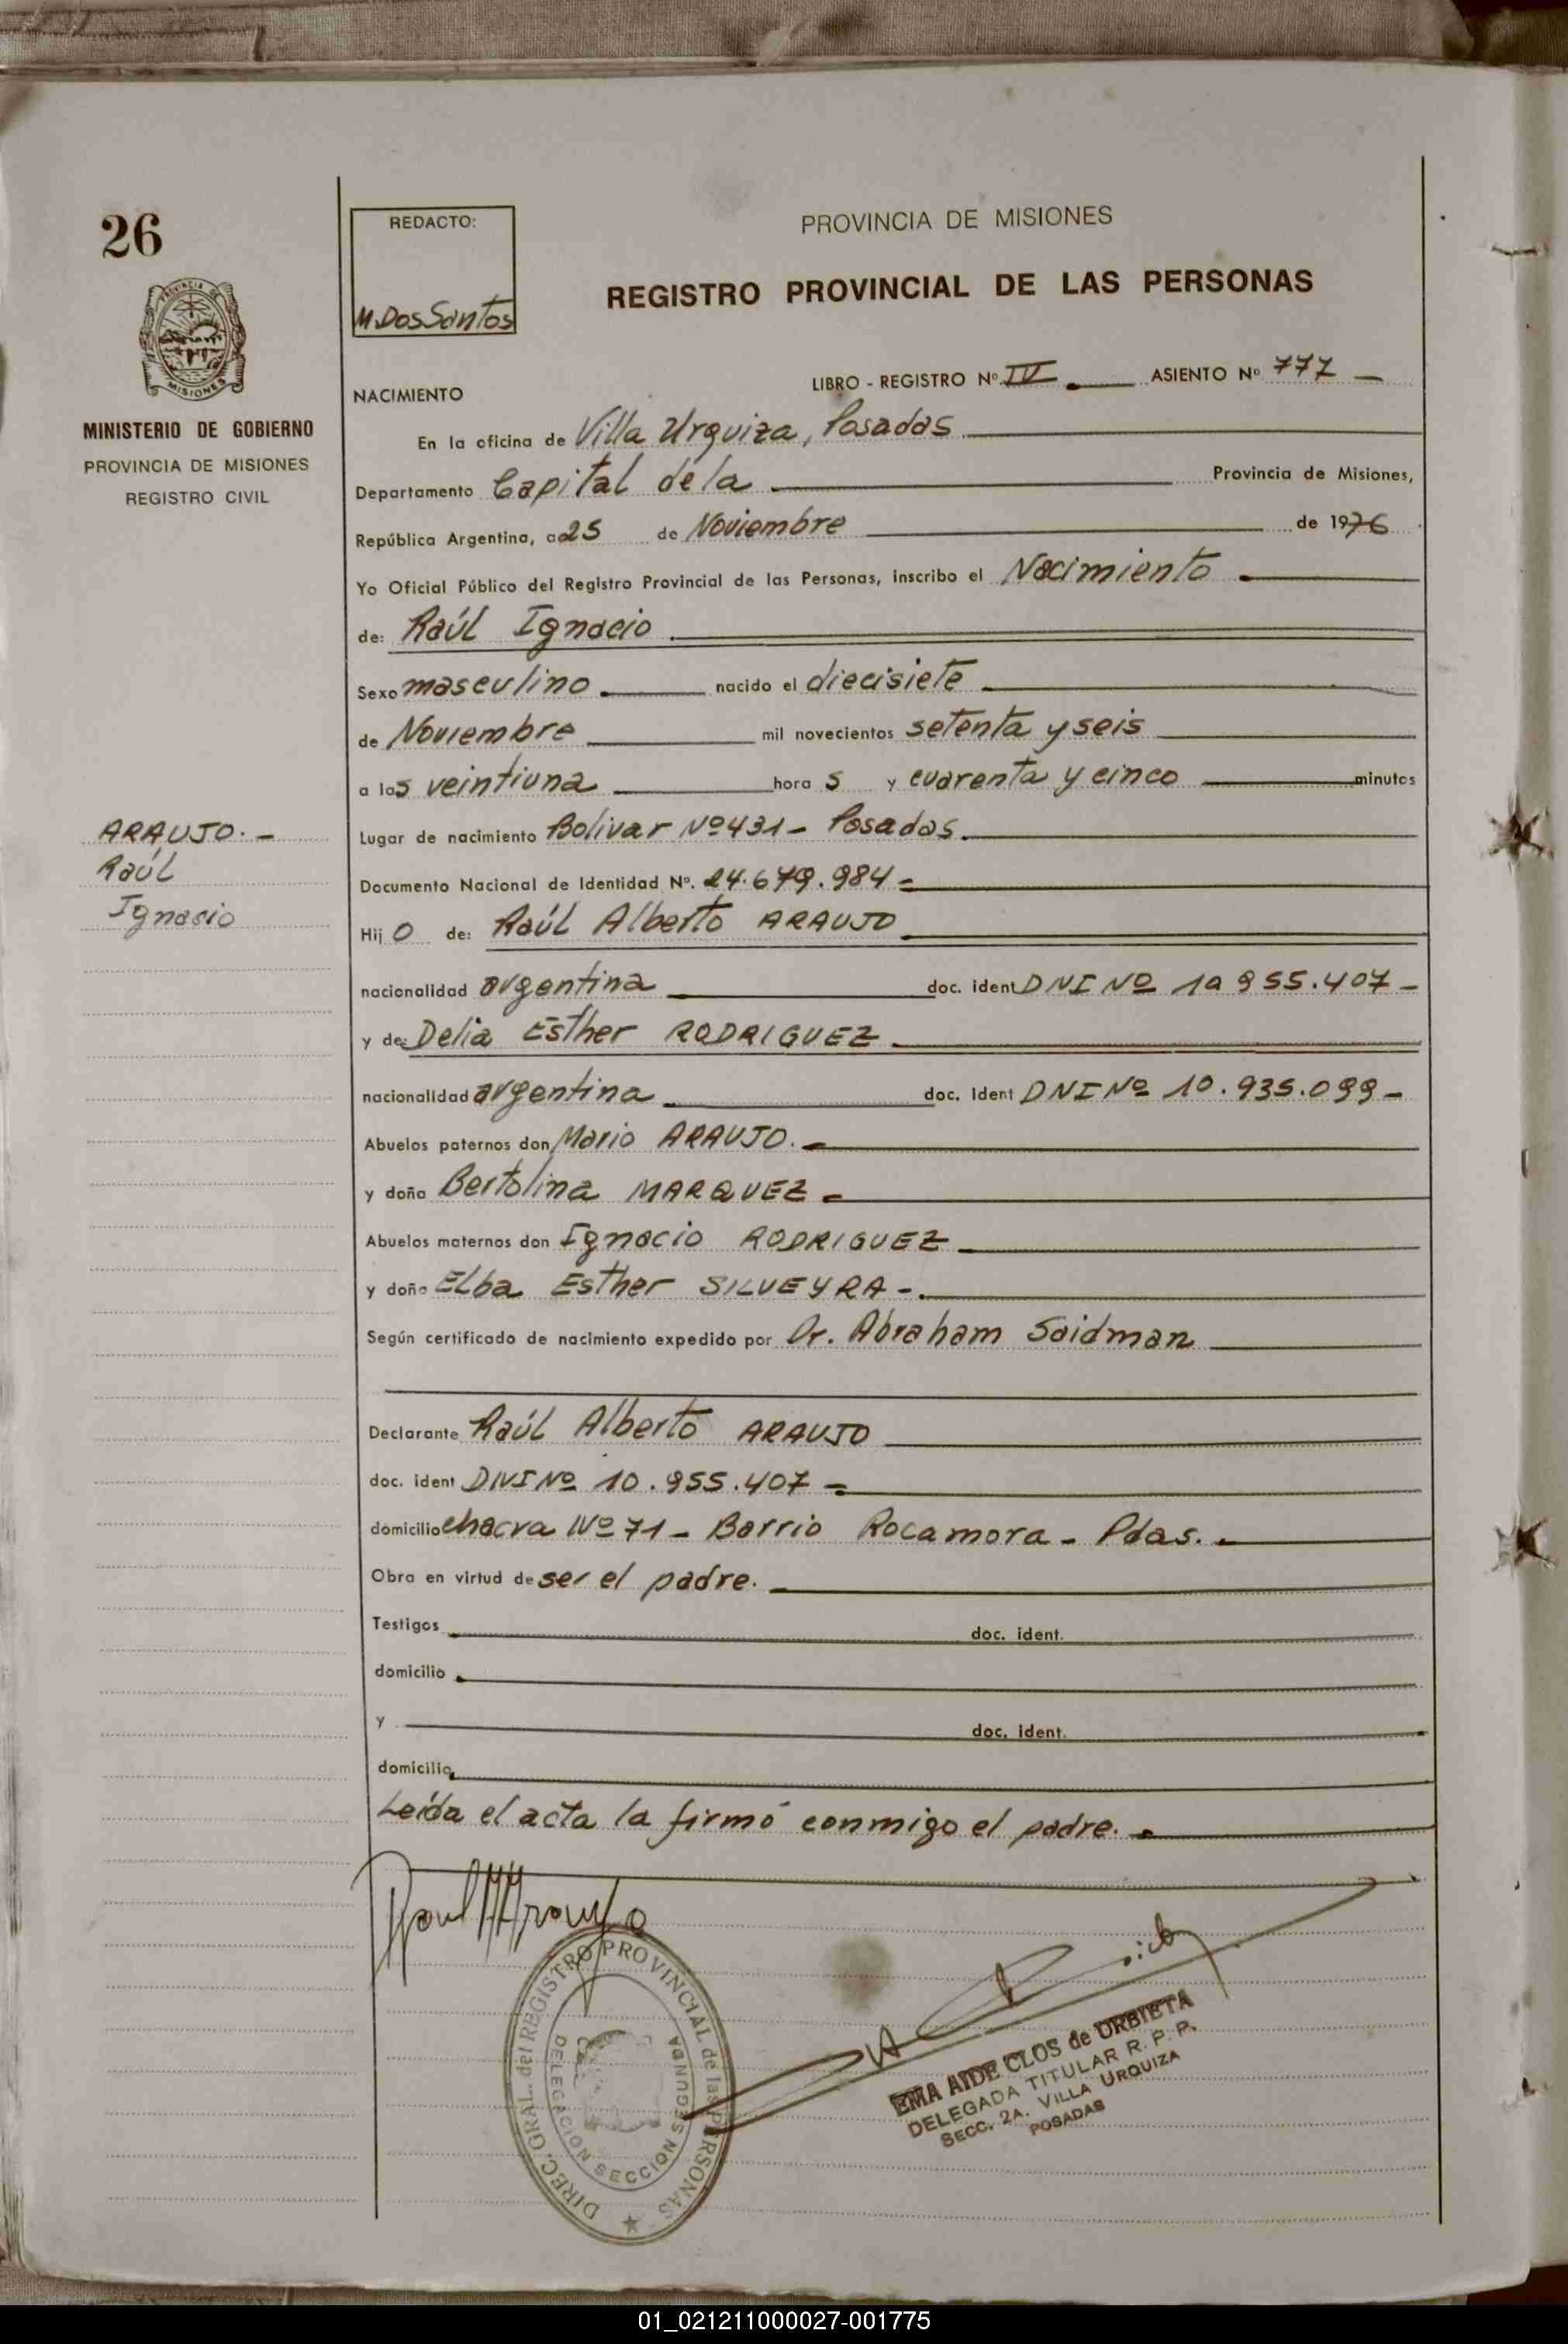 26
REDACTO:
M. Dos Santos
PROVINCIA DE MISIONES
REGISTRO PROVINCIAL DE LAS PERSONAS
PROVINCIA DE
MISIONES
MINISTERIO DE GOBIERNO
PROVINCIA DE MISIONES
REGISTRO CIVIL
LIBRO - REGISTRO Nº IV . ASIENTO Nº 777 —
NACIMIENTO
En la oficina de Villa Urquiza, Posadas
Departamento Capital de la — Provincia de Misiones,
República Argentina, a 25 de Noviembre de 1976
Yo Oficial Público del Registro Provincial de las Personas, inscribo el Nacimiento
de: Raúl Ignacio
Sexo masculino nacido el diecisiete
de Noviembre mil novecientos setenta y seis
a las veintiuna hora s y cuarenta y cinco minutos
Lugar de nacimiento Bolivar Nº 431 - Posadas.
Documento Nacional de Identidad Nº. 24.679.984 -
Hij o de: Raúl Alberto ARAUJO
nacionalidad argentina doc. ident DNI Nº 10 955.407 -
y de: Delia Esther RODRIGUEZ
nacionalidad argentina doc. Ident DNI Nº 10.935.099 -
Abuelos paternos don Mario ARAUJO. -
y doña Bertolina MARQUEZ -
Abuelos maternos don Ignacio RODRIGUEZ
y doña Elba Esther SILVEYRA -.
Según certificado de nacimiento expedido por Dr. Abraham Saidman
Declarante Raúl Alberto ARAUJO
doc. ident DNI Nº 10.955.407 -
domicilio chacra Nº 71 - Barrio Rocamora - Pdas.
Obra en virtud de ser el padre.
Testigos doc. ident.
domicilio
y doc. ident.
domicilio
Leída el acta la firmó conmigo el padre.
ARAUJO. -
Raúl
Ignacio
Raul A Araujo
DIREC. GRAL. del REGISTRO PROVINCIAL de las PERSONAS
DELEGACION SECCION SEGUNDA
EMA AIDE CLOS de URBIETA
DELEGADA TITULAR R. P. P.
SECC. 2A. VILLA URQUIZA
POSADAS
01_021211000027-001775